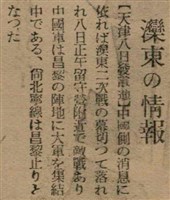 灤東の情報
【天津八日發電通】中國側の消息に
依れば灤東二次戰の幕切つて落さ
れ八日正午留守營附近で激戰あり
中國軍は昌黎の陣地に大軍を集結
中である、尙北寧線は昌黎止りと
なつた